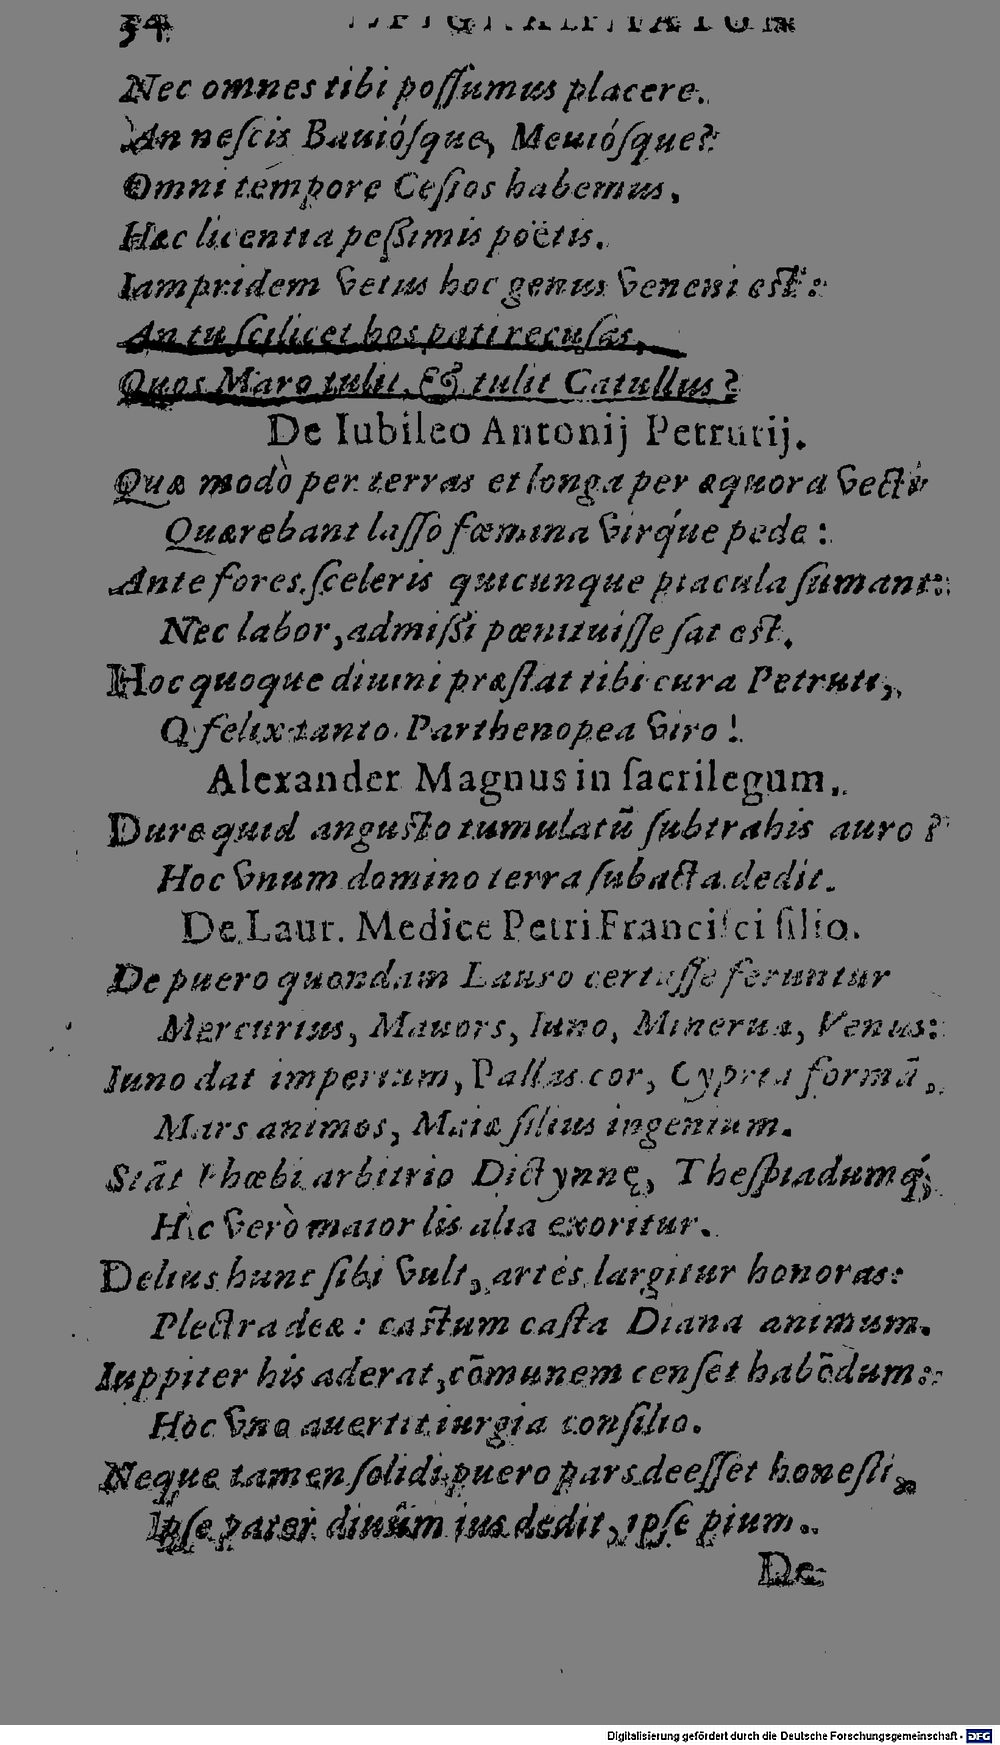 54 EPIGRAMMATON
Nec omnes tibi poſſumus placere.
An neſcis Bauióſque, Meuióſque?
Omni tempore Ceſios habemus,
Hæc licentia peſſimis poëtis.
Iampridem vetus hoc genus veneni eſt:
An tu ſcilicet hos pati recuſas,
Quos Maro tulit, & tulit Catullus?
De Iubileo Antonij Petrutij.
Quæ modò per terras et longa per æquora vecti
Quærebant laſſo fœmina virq́ue pede:
Ante fores ſceleris quicunque piacula ſumant:
Nec labor, admiſſi pœnituiſſe ſat eſt.
Hoc quoque diuini præſtat tibi cura Petruti,
O felix tanto Parthenopea viro!
Alexander Magnus in ſacrilegum.
Dure quid anguſto tumulatū ſubtrahis auro?
Hoc vnum domino terra ſubacta dedit.
De Laur. Medice Petri Franciſci filio.
De puero quondam Lauro certaſſe feruntur
Mercurius, Mauors, Iuno, Minerua, Venus:
Iuno dat imperium, Pallas cor, Cypria formā,
Mars animos, Maiæ filius ingenium.
Stāt Phœbi arbitrio Dictynnę, Theſpiadumq́;
Hic verò maior lis alia exoritur.
Delius hunc ſibi vult, artes largitur honoras:
Plectra deæ: caſtum caſta Diana animum.
Iuppiter his aderat, cōmunem cenſet habēdum:
Hoc vno auertit iurgia conſilio.
Neque tamen ſolidi puero pars deeſſet honeſti,
Ipſe pater diuûm ius dedit, ipſe pium.
De
Digitalisierung gefördert durch die Deutsche Forschungsgemeinschaft - DFG